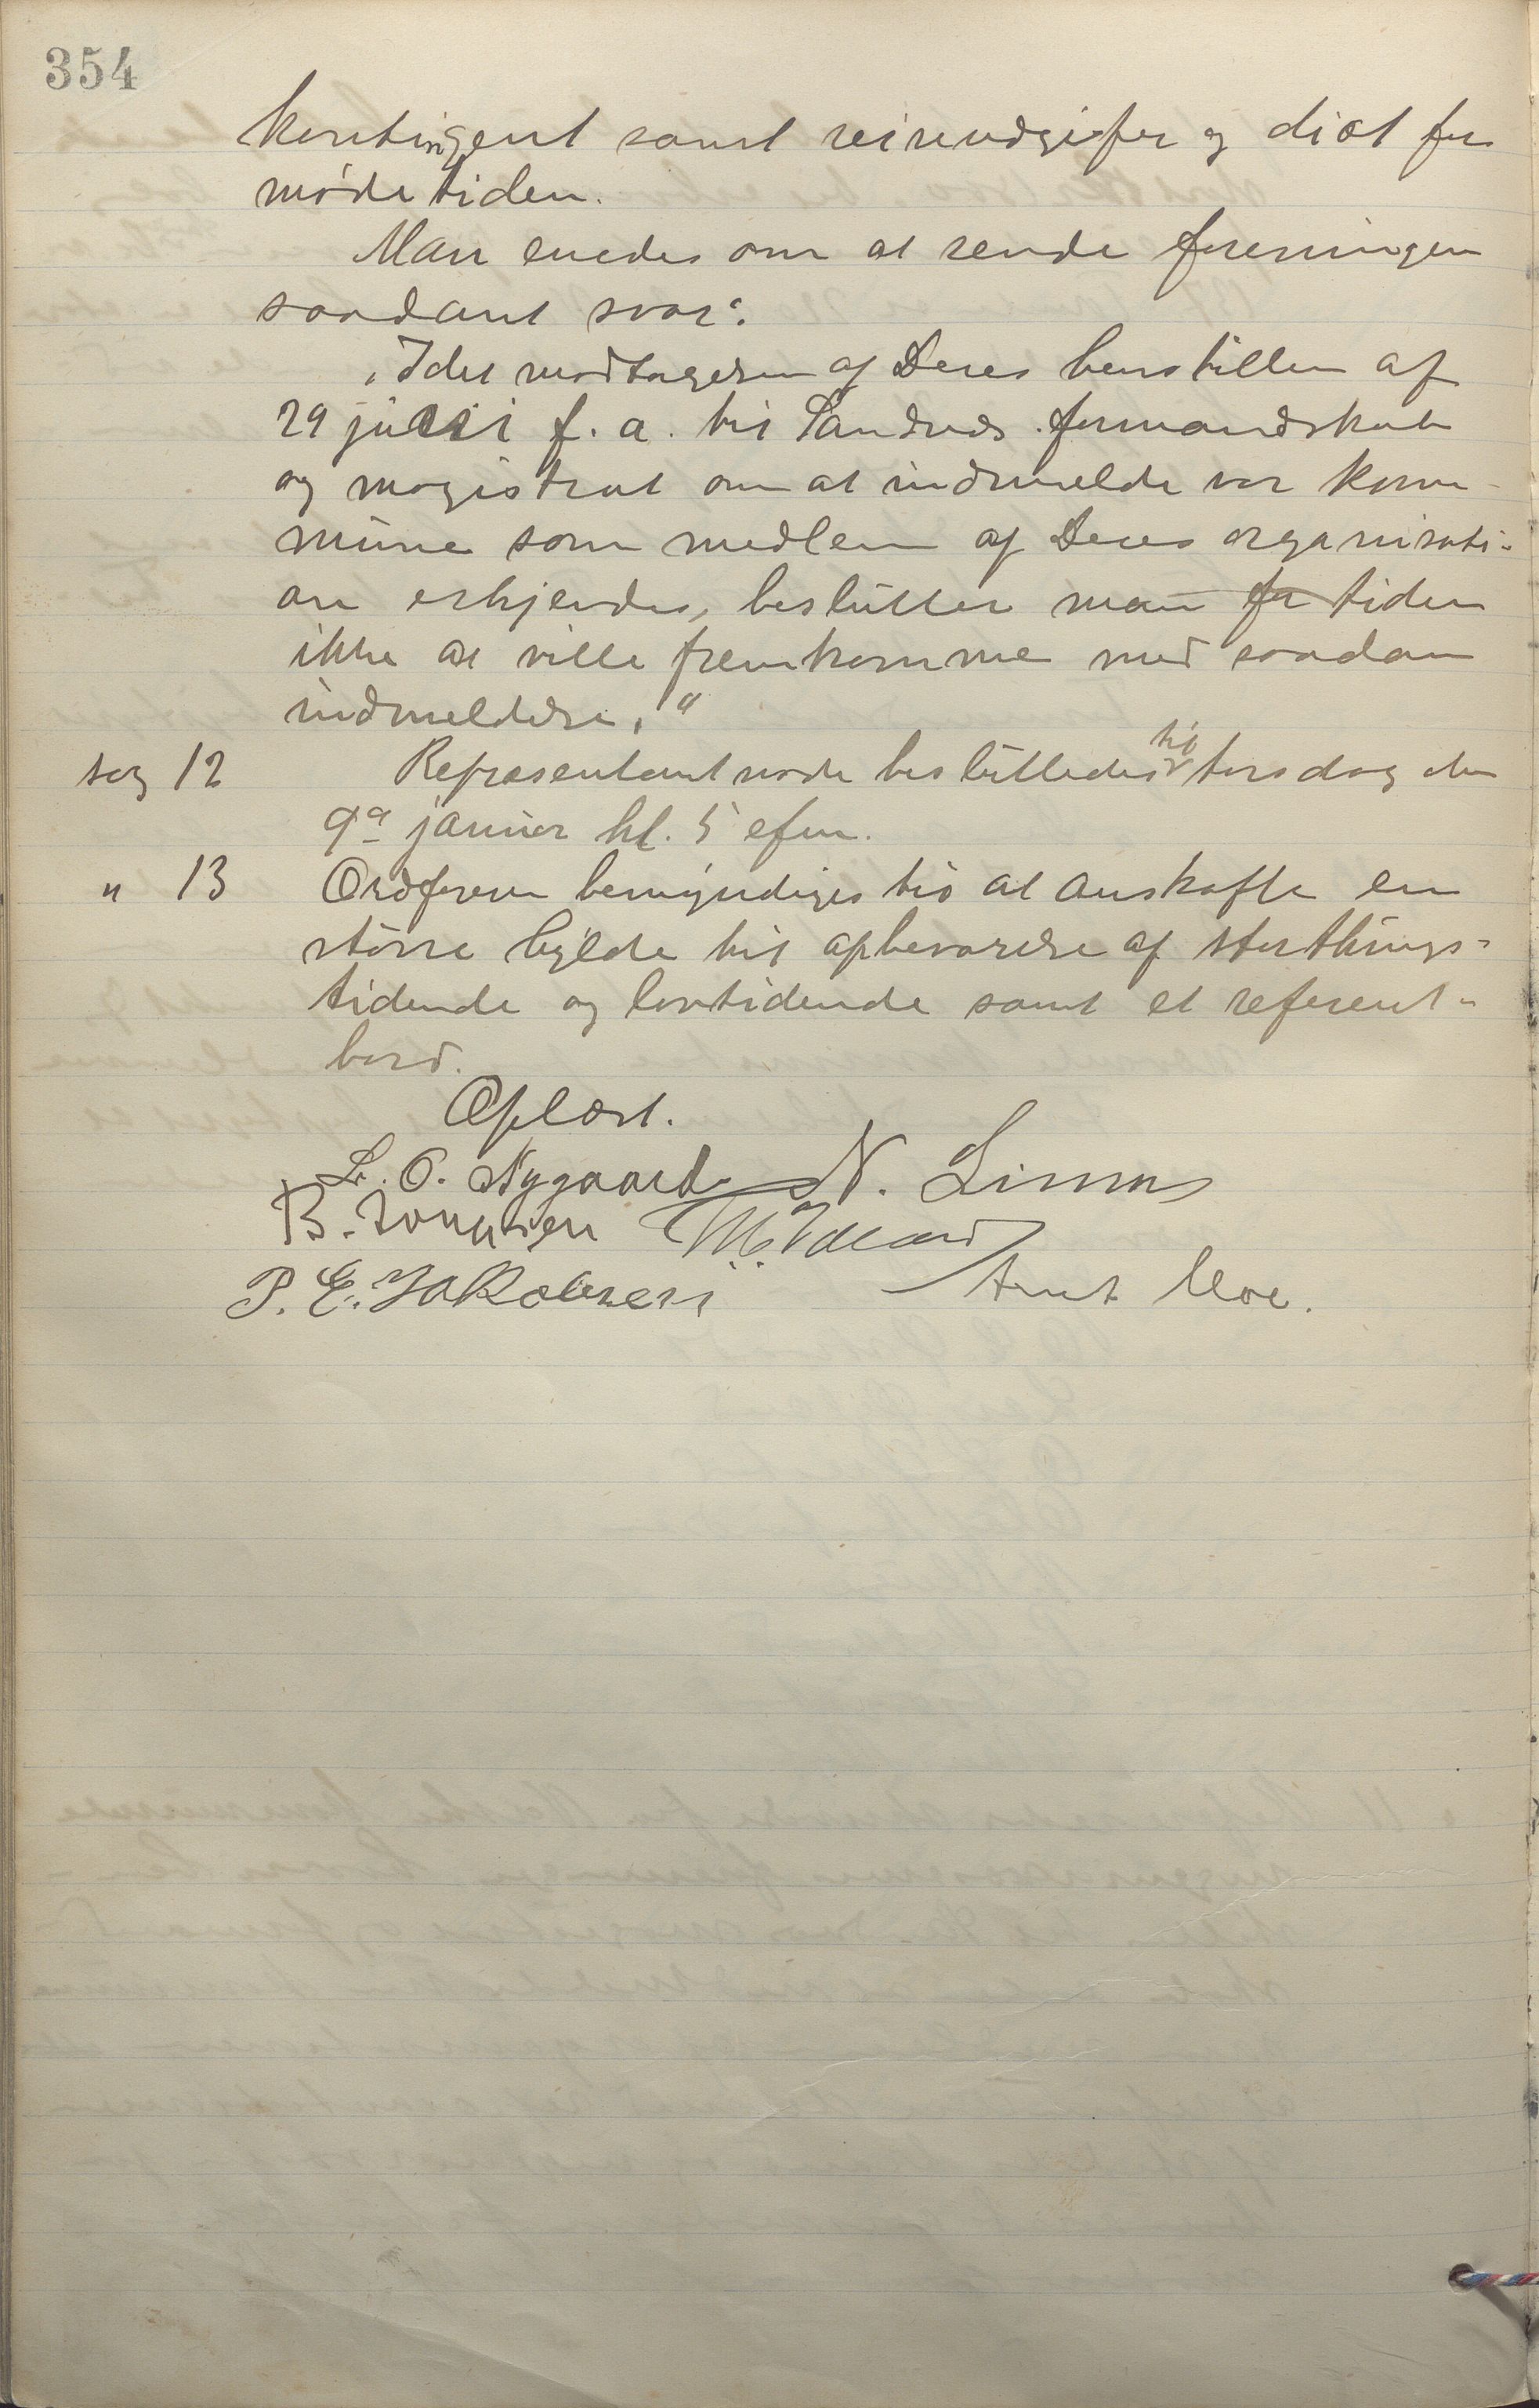 354
kontingent samt reiseudgifter og diæt for
mødetiden.
Man enedes om at sende foreningen
saadant svar:
"Idet modtagelsen af Deres henstillen af
29 juli f. a. til Sandnes formandskab
og magistrat om at indmelde vor kom-
mune som medlem af Deres organisati-
on erkjendes, beslutter man for tiden
ikke at ville fremkomme med saadan
indmeldelse."
sag 12 Repræsentantmøde besluttedes til torsdag den
9de januar kl. 5 efm.
" 13 Ordføreren bemyndiges til at anskaffe en
større hylde til opbevarelse af storthings-
tidende og lovtidende samt et referent-
bord.
Oplæst.
L. O. Nygaard N. Simons
B. Tonnesen M.
P. E. Jakobsen Moe.